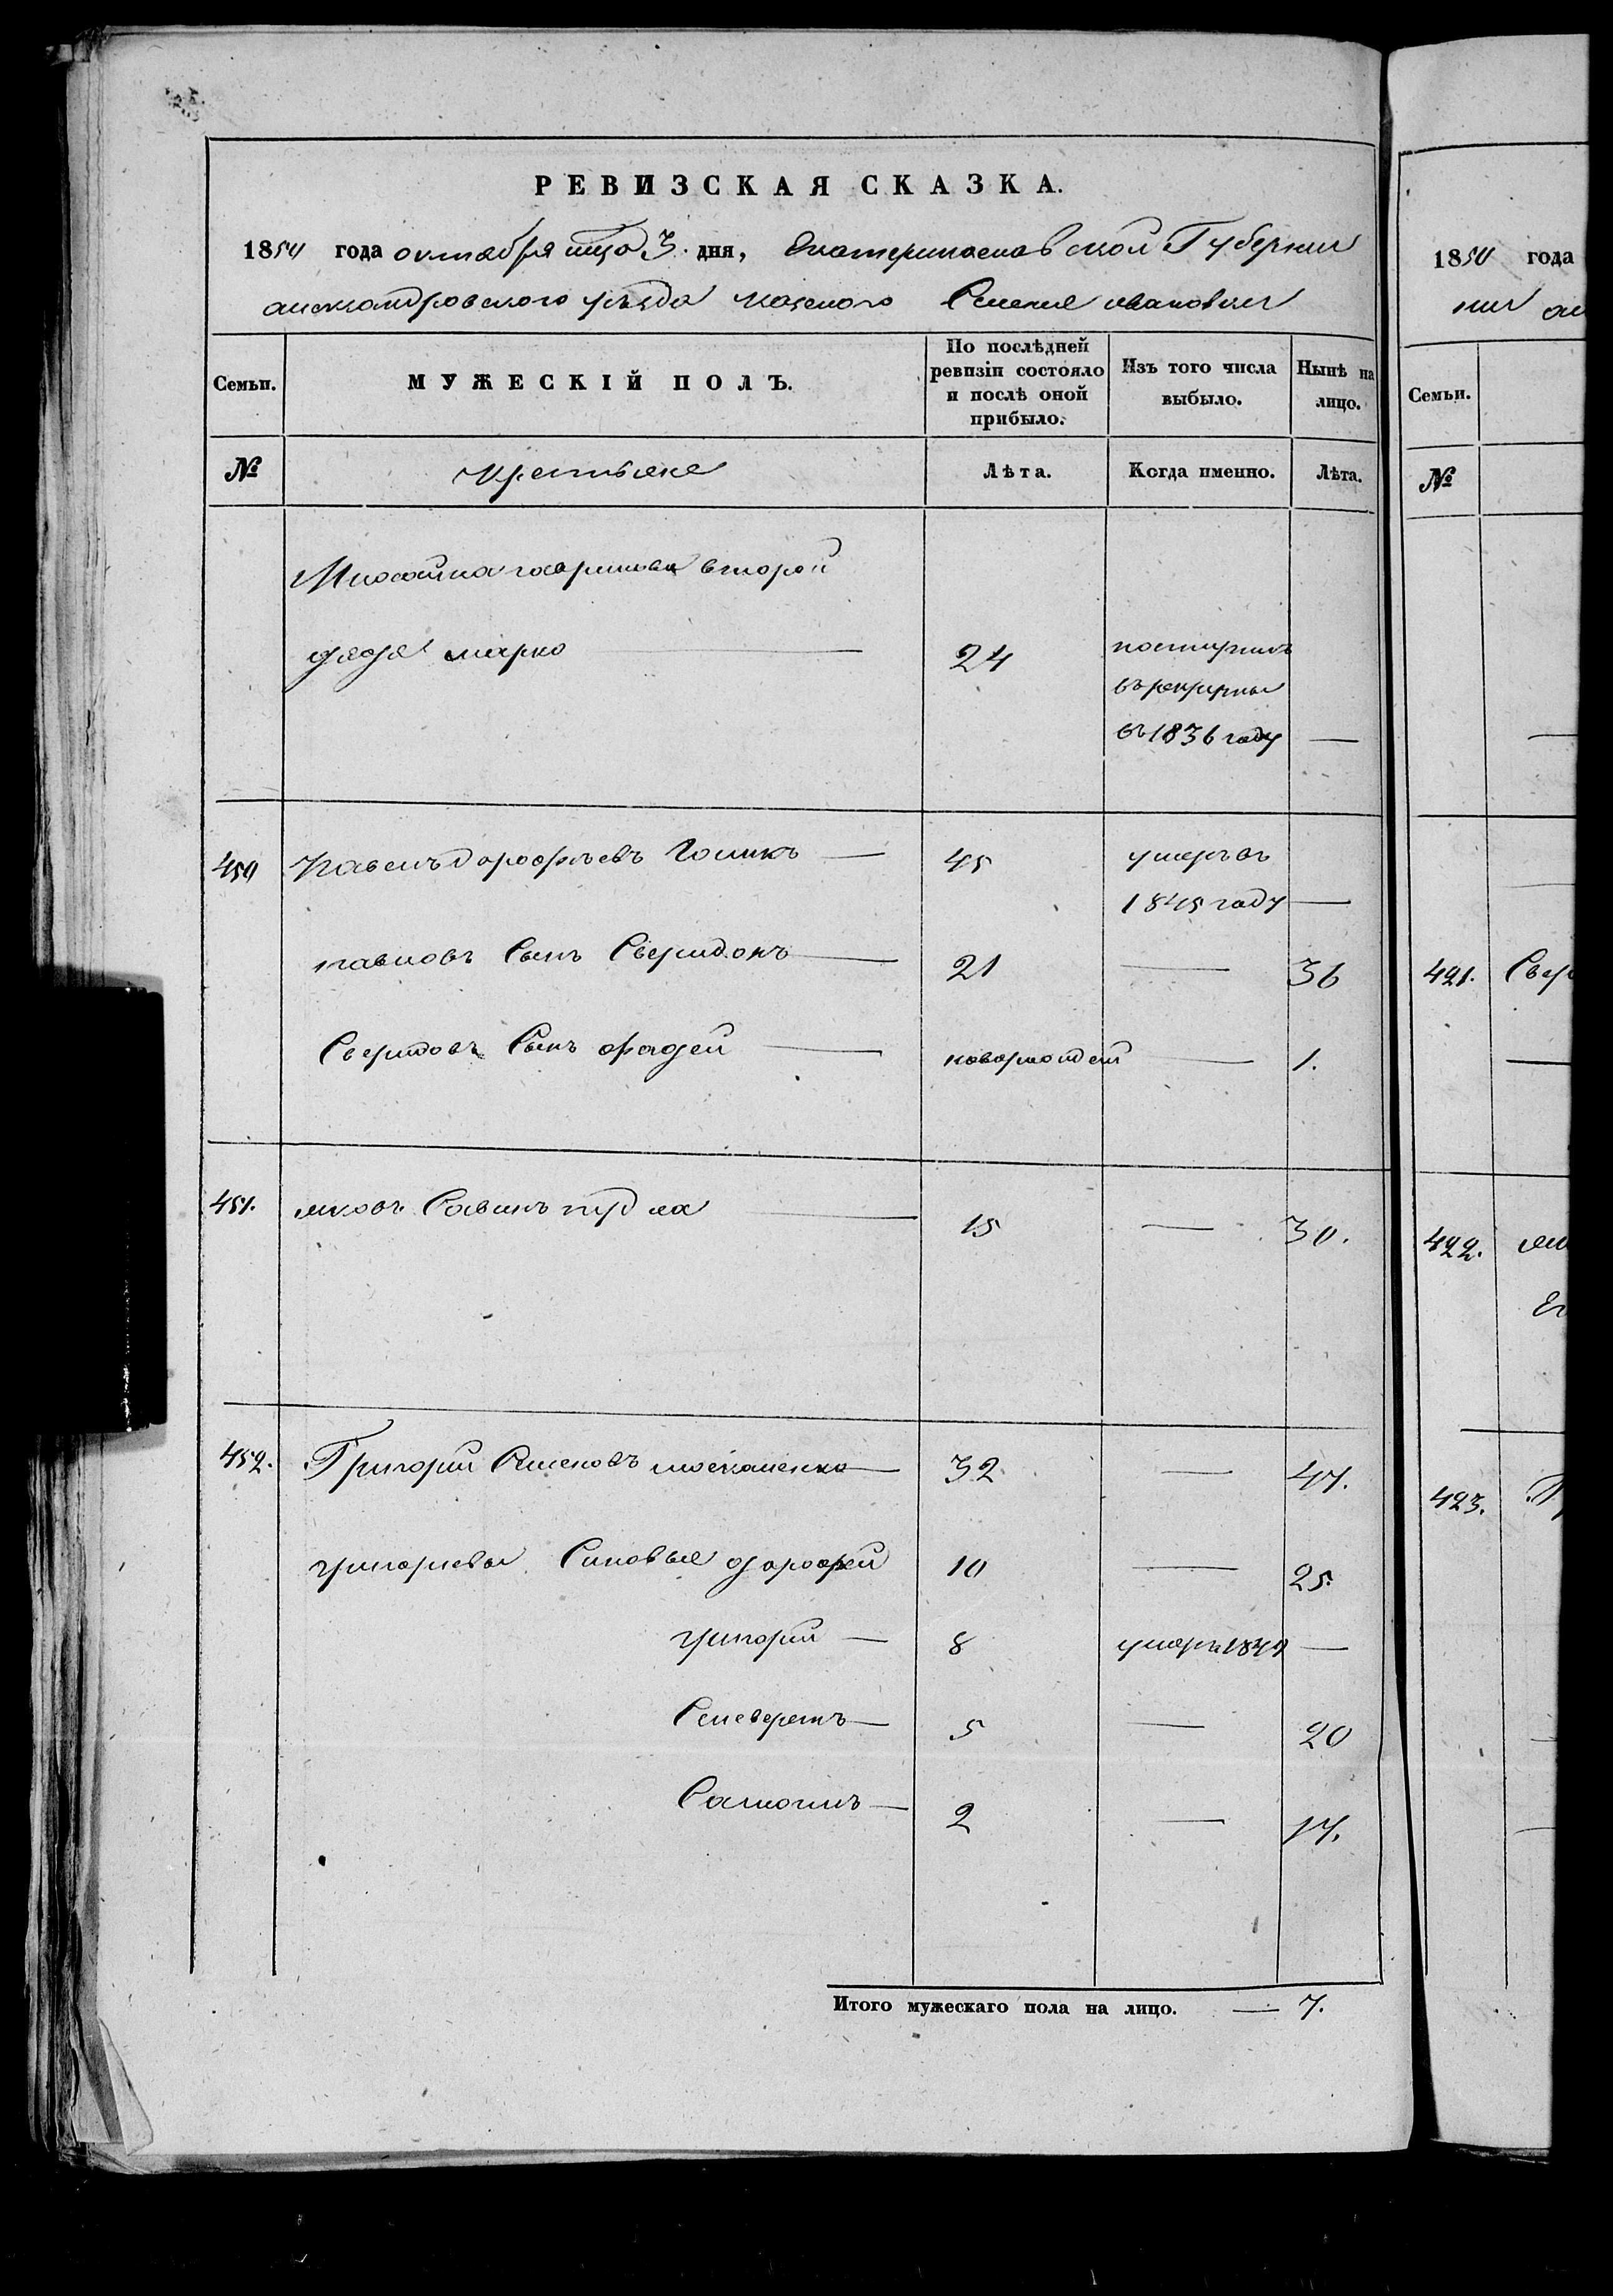 РЕВИЗСКАЯ СКАЗКА.
1850 года октября мца 3 дня, Екатеринославской Губернии
александровского уезда казеного Селения ивановки
Семьи.
МУЖЕСКІЙ ПОЛЪ.
По послѣдней ревизіи состояло и послѣ оной прибыло.
Изъ того числа выбыло.
Нынѣ на лицо.
№ крестьяне Лѣта. Когда именно. Лѣта.
Михайла гаврилова второй
дядя марко 24 поступилъ
въ рекруты
въ 1836 году —
450 Павелъ дорофѣевъ 45 умеръ въ
1845 году —
павловъ Сынъ Свиридонъ 21 — 36
Свиридовъ Сынъ фадей новорожден — 1.
451. яковъ Савинъ 15 — 30.
452. Григорий Семеновъ москаленко 32 — 47.
григориевы Синовья дорофей 10 — 25.
григорий — 8 умеръ 1849 —
Селеверстъ — 5 — 20
Самоилъ — 2 — 17.
Итого мужескаго пола на лицо. — 7.
1850 года
Семьи.
№
421.
422.
423.